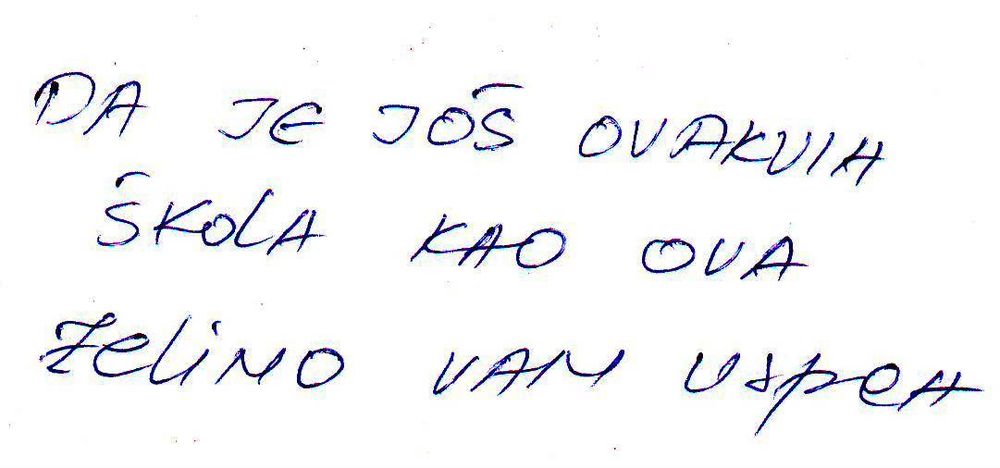 DA JE JOŠ OVAKVIH
ŠKOLA KAO OVA
Želimo VAM uspeh